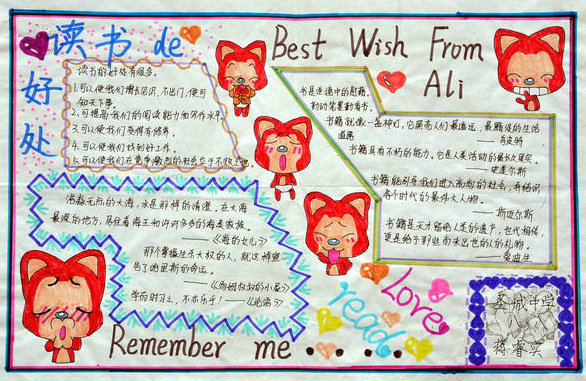 读书 de
好处
Best Wish From
Ali
读书的好处有很多。
1.可以使我们增长见识,不出门,便可
知天下事。
2.可提高我们的阅读能力和写作水平。
3.可以使我们变得有修养。
4.可以使我们找到好工作。
5.可以使我们在竞争激烈的社会立于不败之地
书是逆境中的慰藉。
书籍就像一盏神灯,它照亮人们最遥远、最黯淡的生活
道路
书籍具有不朽的能力。它是人类活动的最长久果实。
——史美尔斯
书籍能引导我们进入高尚的社会,并结识
各个时代的最伟大人物。
——斯迈尔斯
书籍是天才留给人类的遗产,世代相传,
更是给予那些尚未出世的人的礼物。
——爱迪生
浩瀚无形的大海,永是那样的清澄,在大海
最深的地方,居住着海王和许许多多的海底家族。
——《海的女儿》
那个掌握生杀大权的人,就这样决
定了
的命运。
——《汤姆叔叔的小屋》
学而时习之,不亦乐乎!——《论语》
Love
read
Remember me
圣城中学